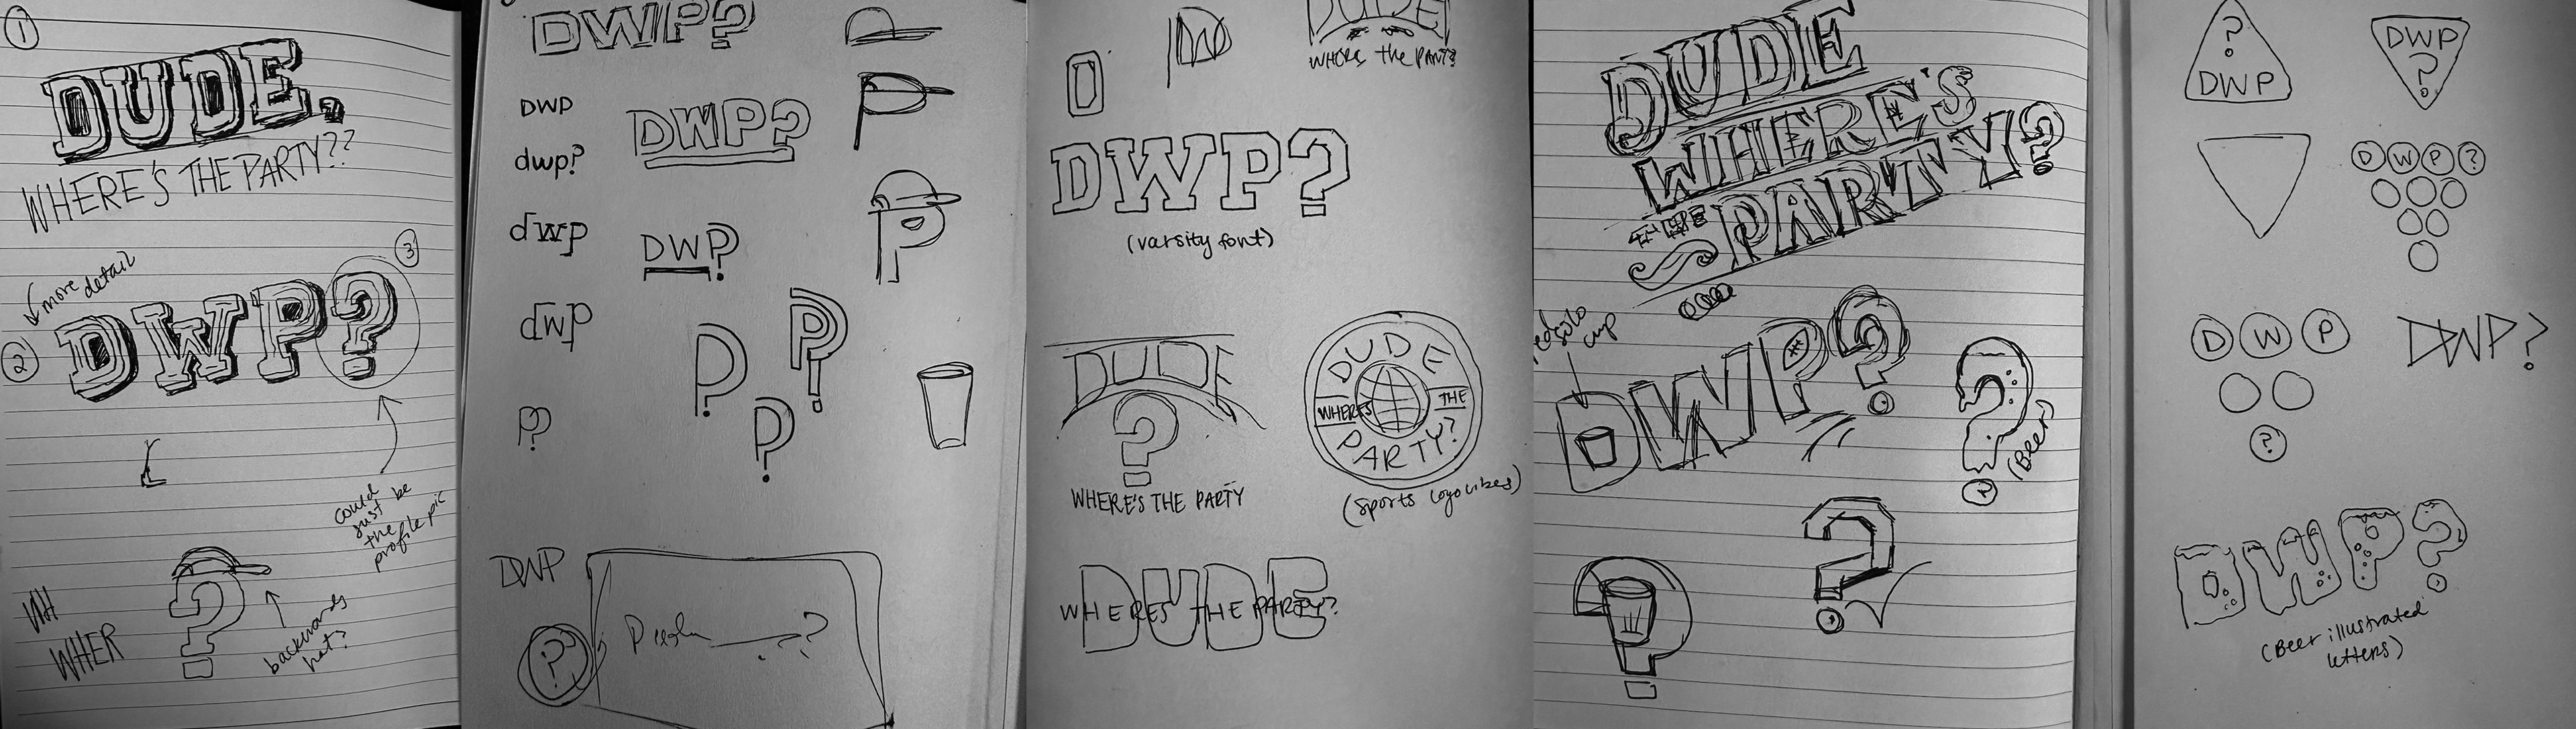 1
DUDE.
WHERE'S THE PARTY??
more detail
3
2
DWP?
could
just be
the
profile pic
WH
WHER
backwards
hat?
DWP?
DWP
dwp?
dwp
dwp
P?
DWP?
DWP?
P
P
P
P
P
DWP
?
?
D
DW
DUDE
WHERE'S the PARTY?
DWP?
(varsity font)
DUDE
?
WHERE'S THE PARTY
DUDE
WHERE'S THE
PARTY?
(Sports logo vibes)
DUDE
WHERE'S THE PARTY?
DUDE
WHERE'S
THE
PARTY?
red solo
cup
DWP?
?
(Beer)
?
?
?
DWP
DWP
?
D W P ?
D W P
?
DWP?
DWP?
(Beer illustrated
letters)